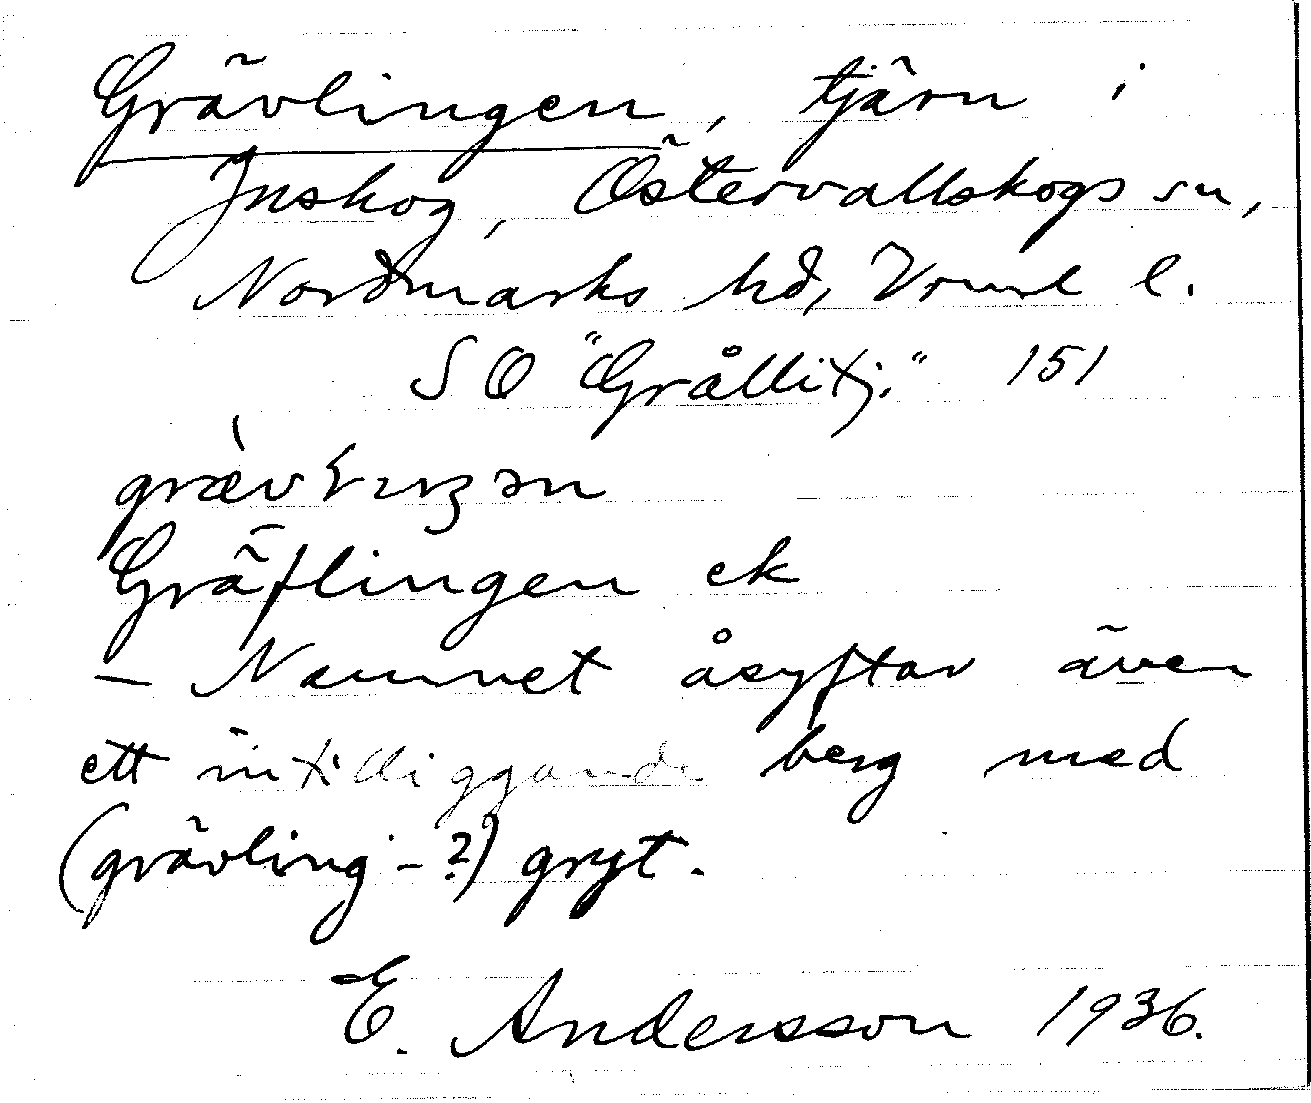 Grävlingen, tjärn i
Inskog, Östervallskogs sn,
Nordmarks hd, Vrml l.
SO "Grållitj." 151
Gräflingen ek
— Namnet åsyftar även
ett intilliggande berg med
(grävling-?) gryt.
E. Andersson 1936.